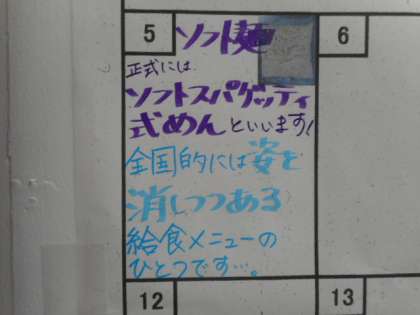 5
ソフト麺
6
正式には
ソフトスパゲッティ
式めんといいます!
全国的には姿を
消しつつある
給食メニューの
ひとつです…。
12
13